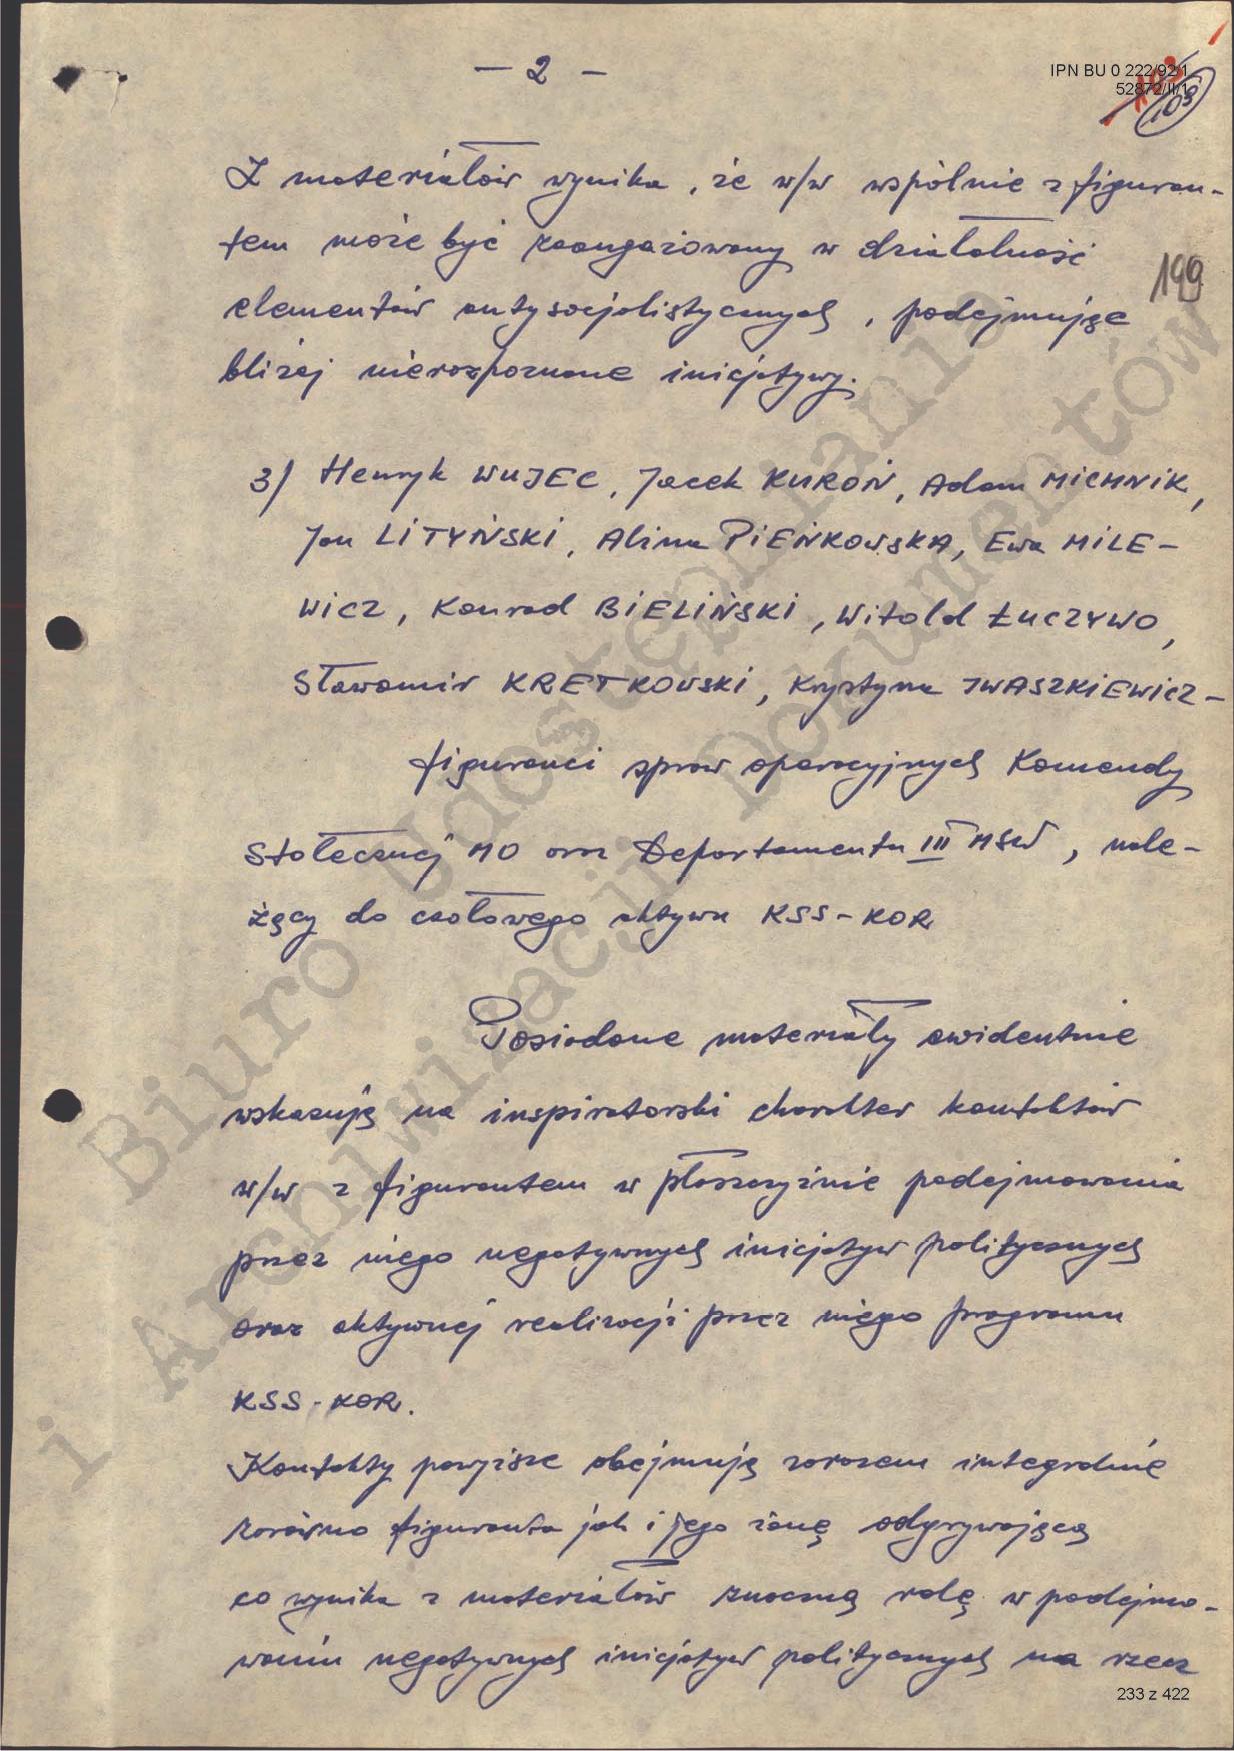 — 2 –
IPN BU 0 222/92/1
52872/II/1
103
103
Z materiałów wynika, że w/w wspólnie z figuran-
tem może być zaangażowany w działalność
199
elementów antysocjalistycznych, podejmując
bliżej nierozpoznane inicjatywy.
3/ Henryk WUJEC, Jacek KUROŃ, Adam MICHNIK,
Jan LITYŃSKI, Alina PIEŃKOWSKA, Ewa MILE-
WICZ, Konrad BIELIŃSKI, Witold ŁUCZYWO,
Sławomir KRETKOWSKI, Krystyna IWASZKIEWICZ –
figuranci spraw operacyjnych Komendy
Stołecznej MO oraz Departamentu III MSW, nale-
żący do czołowego aktywu KSS-KOR
Posiadane materiały ewidentnie
wskazują na inspiratorski charakter kontaktów
w/w z figurantem w płaszczyźnie podejmowania
przez niego negatywnych inicjatyw politycznych
oraz aktywnej realizacji przez niego programu
KSS-KOR.
Kontakty powyższe obejmują zarazem integralnie
zarówno figuranta jak i jego żonę odgrywającą
co wynika z materiałów znaczną rolę w podejmo-
waniu negatywnych inicjatyw politycznych na rzecz
Biuro Udostępniania
i Archiwizacji Dokumentów
233 z 422